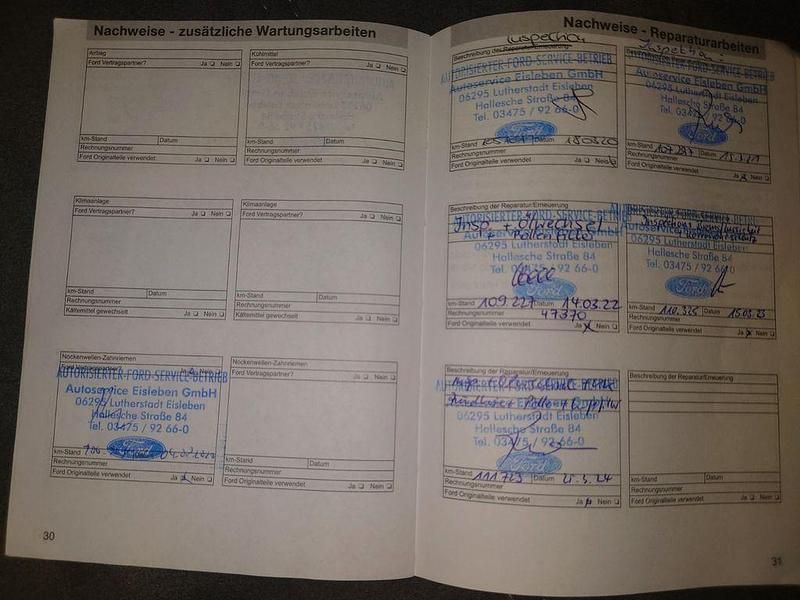 Nachweise - zusätzliche Wartungsarbeiten
Airbag
Ford Vertragspartner? Ja Nein
km-Stand Datum
Rechnungsnummer
Ford Originalteile verwendet Ja Nein
Kühlmittel
Ford Vertragspartner? Ja Nein
km-Stand Datum
Rechnungsnummer
Ford Originalteile verwendet Ja Nein
Klimaanlage
Ford Vertragspartner? Ja Nein
km-Stand Datum
Rechnungsnummer
Kältemittel gewechselt Ja Nein
Klimaanlage
Ford Vertragspartner? Ja Nein
km-Stand Datum
Rechnungsnummer
Kältemittel gewechselt Ja Nein
Nockenwellen-Zahnriemen
Ford Vertragspartner? Ja Nein
AUTORISIERTER-FORD-SERVICE-BETRIEB
Autoservice Eisleben GmbH
06295 Lutherstadt Eisleben
Hallesche Straße 84
Tel. 03475 / 92 66-0
Ford
km-Stand
Rechnungsnummer
Ford Originalteile verwendet Ja Nein
Nockenwellen-Zahnriemen
Ford Vertragspartner? Ja Nein
km-Stand Datum
Rechnungsnummer
Ford Originalteile verwendet Ja Nein
30
Nachweise - Reparaturarbeiten
Inspektion
Beschreibung der Reparatur/Erneuerung
AUTORISIERTER-FORD-SERVICE-BETRIEB
Autoservice Eisleben GmbH
06295 Lutherstadt Eisleben
Hallesche Straße 84
Tel. 03475 / 92 66-0
Ford
km-Stand Datum
Rechnungsnummer
Ford Originalteile verwendet Ja Nein
Inspektion
AUTORISIERTER-FORD-SERVICE-BETRIEB
Autoservice Eisleben GmbH
06295 Lutherstadt Eisleben
Hallesche Straße 84
Tel. 03475 / 92 66-0
Ford
km-Stand 107 297 Datum
Rechnungsnummer
Ford Originalteile verwendet Ja Nein
Beschreibung der Reparatur/Erneuerung
AUTORISIERTER-FORD-SERVICE-BETRIEB
Insp. + Ölwechsel
+ Pollenfilter
06295 Lutherstadt Eisleben
Hallesche Straße 84
Tel. 03475 / 92 66-0
Ford
km-Stand 109.227 Datum 14.03.22
Rechnungsnummer 47370
Ford Originalteile verwendet Ja Nein
06295 Lutherstadt Eisleben
Hallesche Straße 84
Tel. 03475 / 92 66-0
Ford
km-Stand 110.325 Datum 15.03.23
Rechnungsnummer
Ford Originalteile verwendet Ja Nein
Beschreibung der Reparatur/Erneuerung
06295 Lutherstadt Eisleben
Hallesche Straße 84
Tel. 03475 / 92 66-0
Ford
km-Stand 111.723 Datum
Rechnungsnummer
Ford Originalteile verwendet Ja Nein
Beschreibung der Reparatur/Erneuerung
km-Stand Datum
Rechnungsnummer
Ford Originalteile verwendet Ja Nein
31